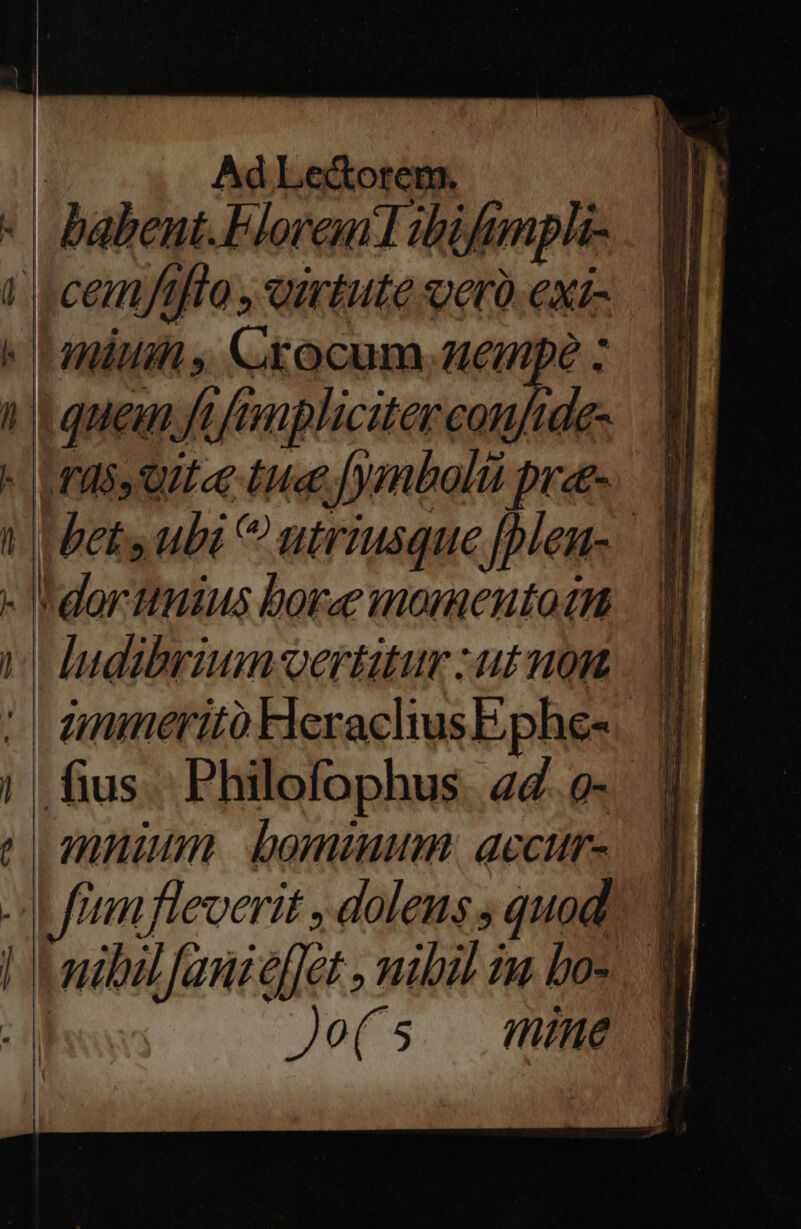 Ad Lectorem.
habent. Florem Tibi ſimpli-
cem ſiſto, virtute verò exi-
mium, Crocum nempè :
quem ſi ſimpliciter conſide-
ras, vitæ tuæ ſymbolũ præ-
bet, ubi & utriusque ſplen-
dor unius horæ momento in
ludibrium vertitur : ut non
immeritò Heraclius Ephe-
ſius Philoſophus ad o-
mnium hominum accur-
ſum fleverit, dolens, quod
nihil ſani eſſet, nihil in ho-
)o( 5 mine